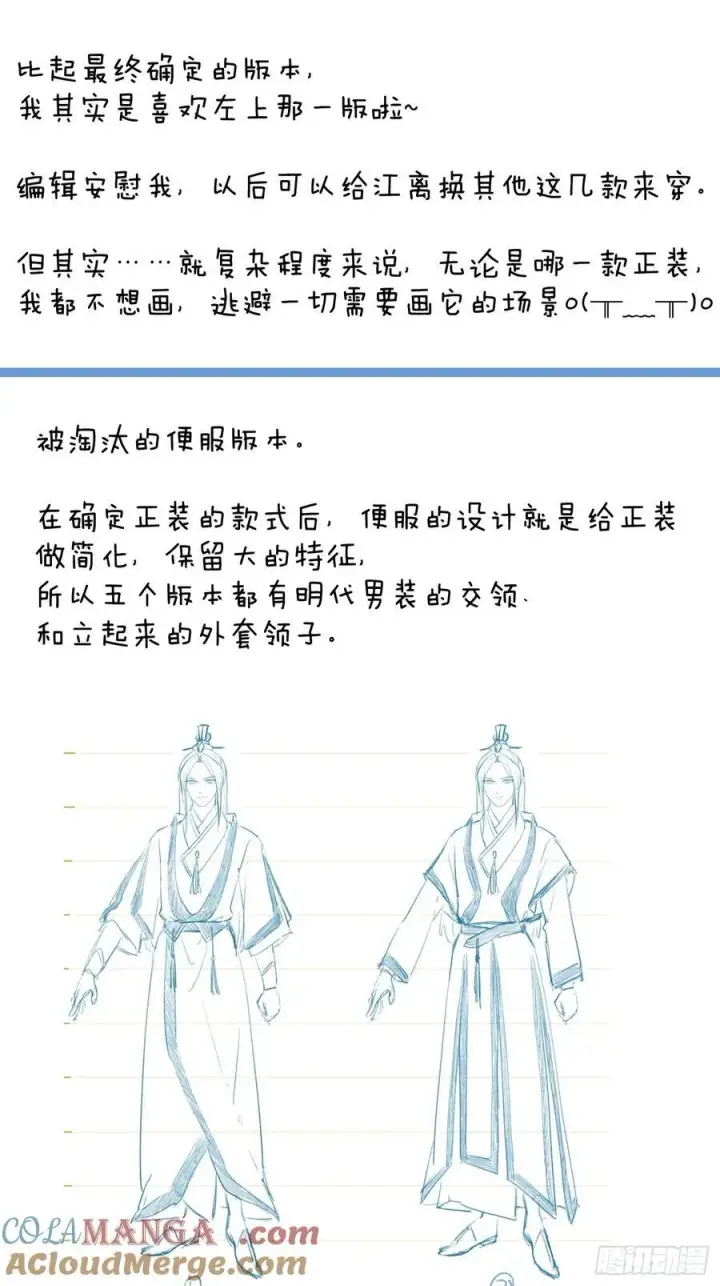 比起最终确定的版本,
我其实是喜欢左上那一版啦~
编辑安慰我, 以后可以给江离换其他这几款来穿。
但其实……就复杂程度来说, 无论是哪一款正装,
我都不想画, 逃避一切需要画它的场景o(╥﹏╥)o
被淘汰的便服版本。
在确定正装的款式后, 便服的设计就是给正装
做简化, 保留大的特征,
所以五个版本都有明代男装的交领、
和立起来的外套领子。
COLAMANGA.com
AcloudMerge.com
腾讯动漫